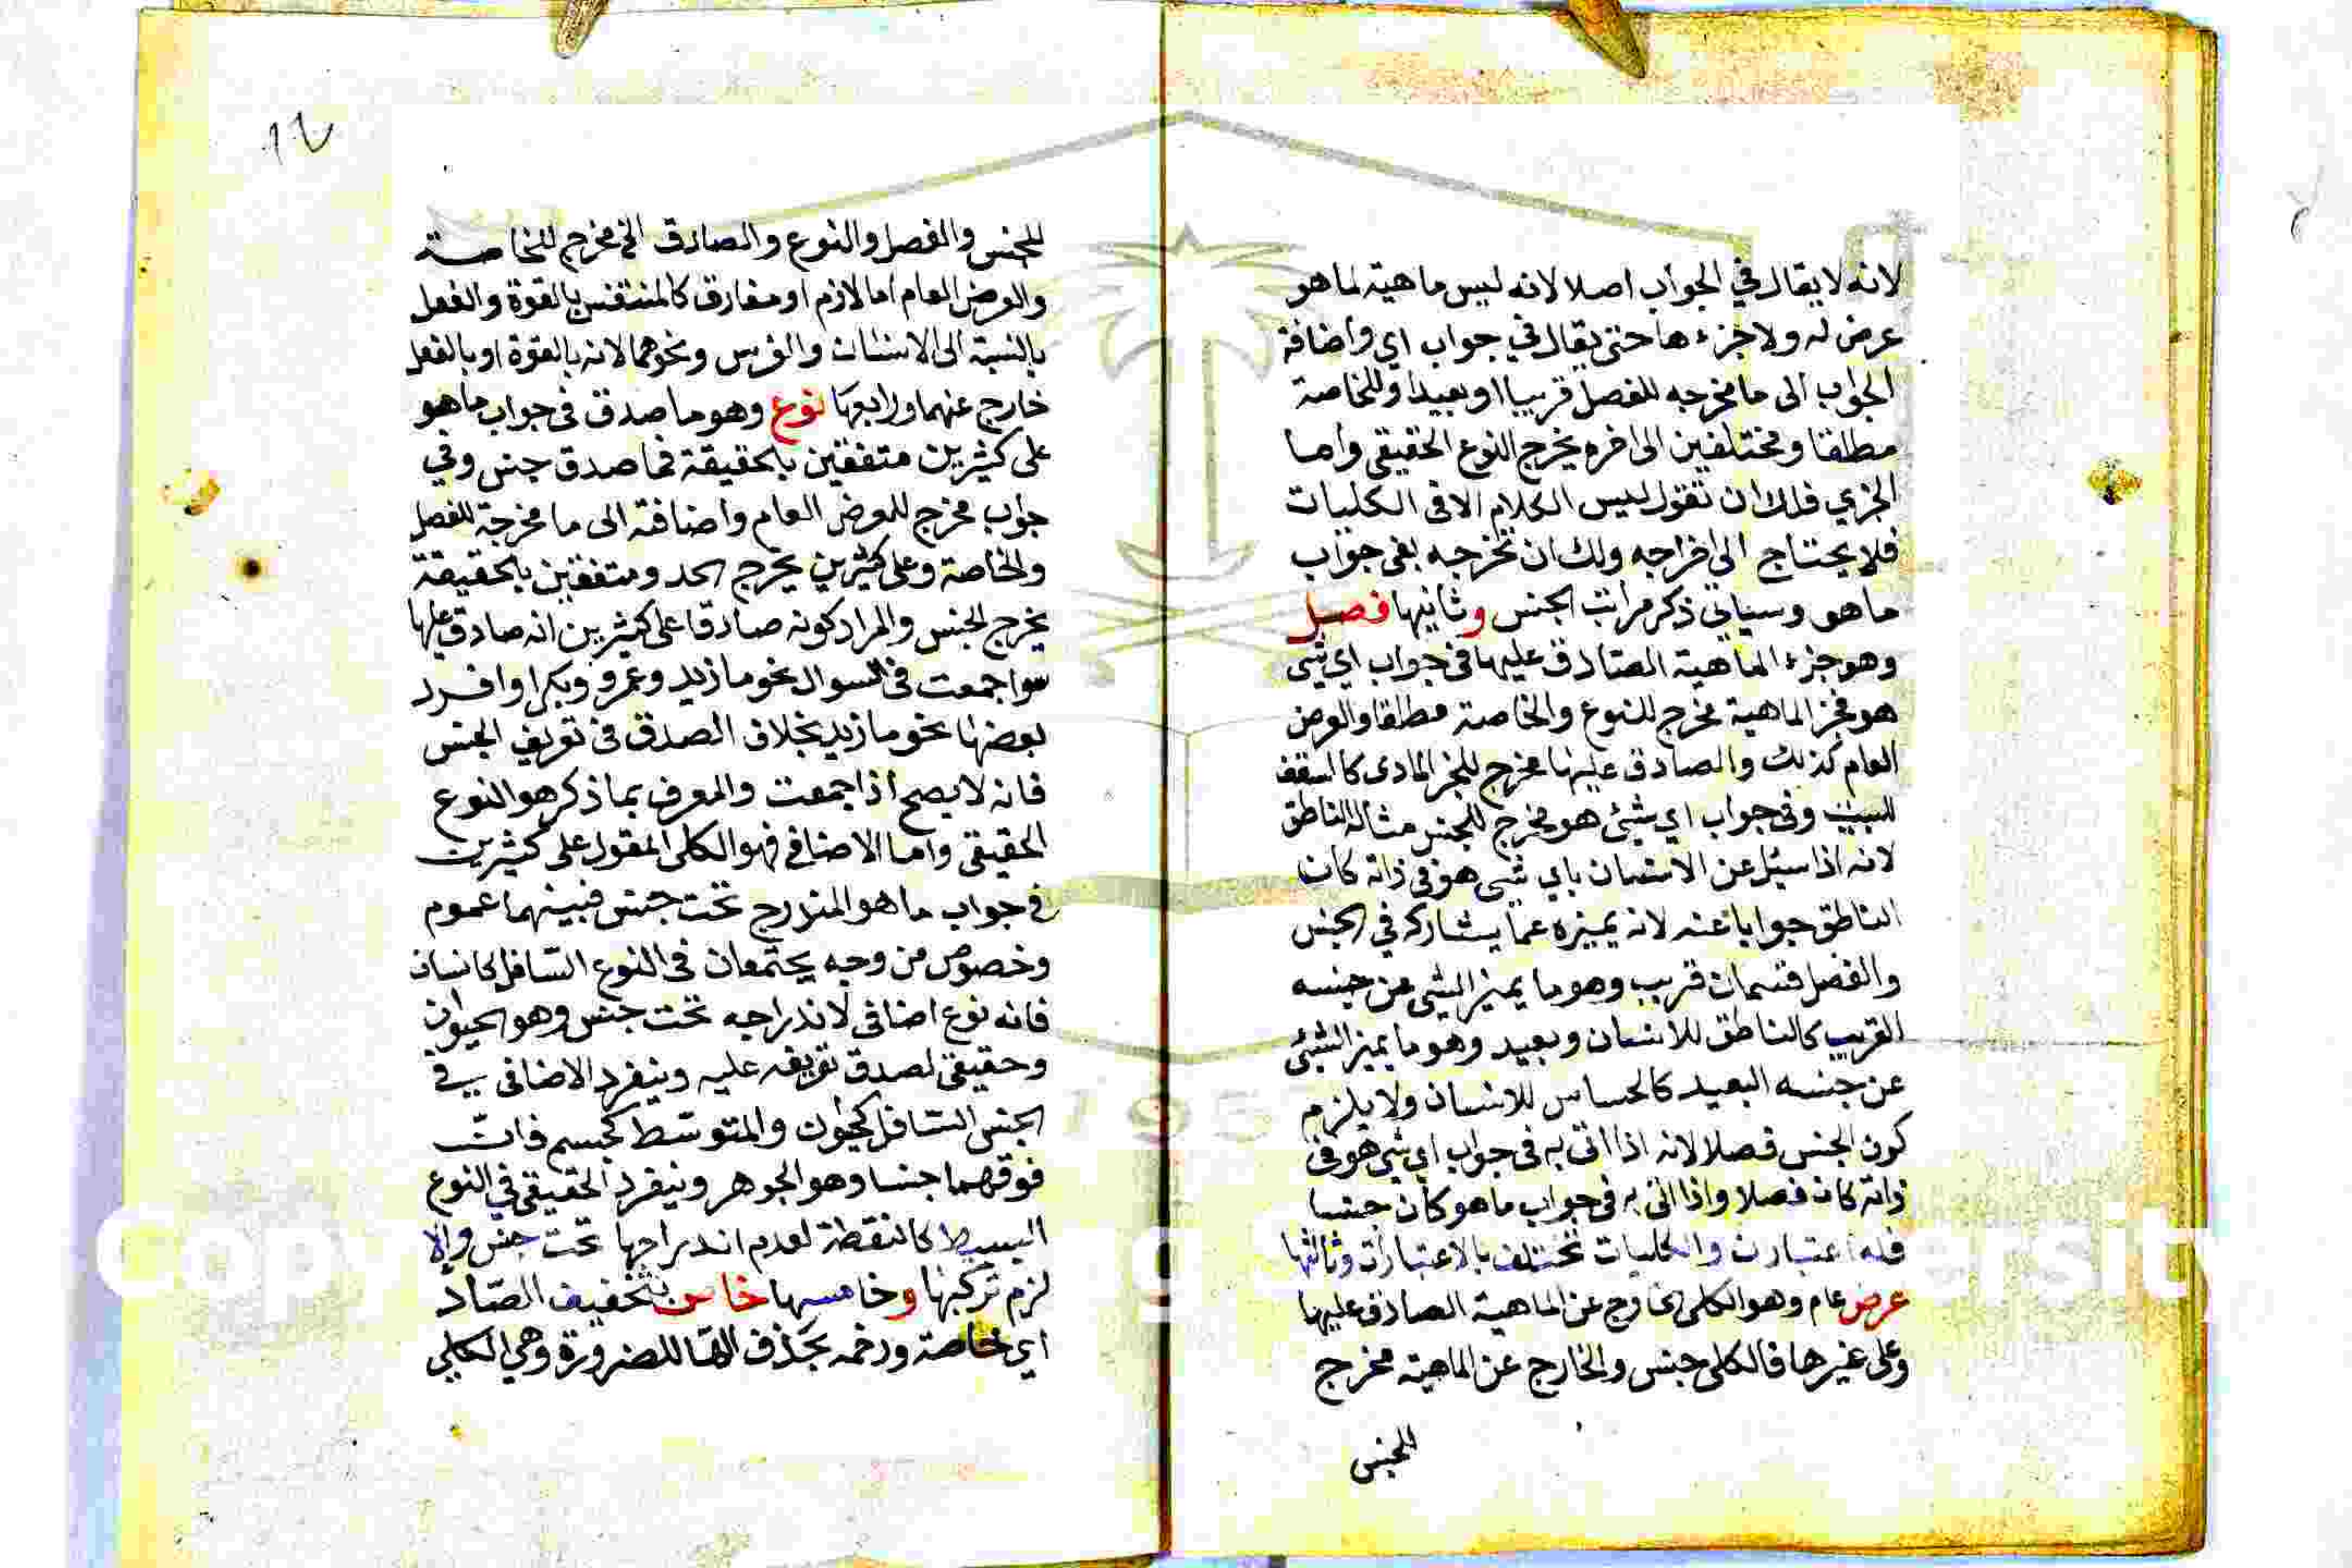 لانه لا يقال في الجواب اصلا لانه ليس ماهية لما هو
عرض له ولا جزءها حتى يقال في جواب اي واضافة
الجواب الى ما مخرجه للفصل قريبا او بعيدا وللخاصة
مطلقا ومختلفين الى اخره يخرج النوع الحقيقي واما
الجزي فلك ان تقول ليس الكلام الا في الكليات
فلا يحتاج الى اخراجه ولك ان تخرجه بفي جواب
ما هو وسياتي ذكر مراتب الجنس وثانيها فصل
وهو جزء الماهية الصادق عليها في جواب اي شي
هو فجز الماهية مخرج للنوع والخاصة مطلقا والعرض
العام كذلك والصادق عليها مخرج للجز المادي كالسقف
للبيت وفي جواب اي شئ هو مخرج للجنس مثاله الناطق
لانه اذا سيل عن الانسان باي شي هو في ذاته كان
الناطق جوابا عنه لانه يميزه عما يشاركه في الجنس
والفصل قسمان قريب وهو ما يميز الشي عن جنسه
القريب كالناطق للانسان وبعيد وهو ما يميز الشئ
عن جنسه البعيد كالحساس للانسان ولا يلزم
كون الجنس فصلا لانه اذا اتى به في جواب اي شي هو في
ذاته كان فصلا واذا اتى به في جواب ما هو كان جنسا
فله اعتبارت والكليات تختلف بالاعتبارات وثالثها
عرض عام وهو الكلي الخارج عن الماهية الصادق عليها
وعلى غيرها فالكلي جنس والخارج عن الماهية مخرج
للجنس
١٢
للجنس والفصل والنوع والصادق الخ مخرج للخاصة
والعرض العام اما لازم او مفارق كالمتنفس بالقوة والفعل
بالنسبة الى الانسان والفرس ونحوهما لانه بالقوة او بالفعل
خارج عنهما ورابعها نوع وهو ما صدق في جواب ما هو
على كثيرين متفقين بالحقيقة فما صدق جنس وفي
جواب مخرج للعرض العام واضافته الى ما مخرجة للفصل
والخاصة وعلى كثيرين يخرج الحد ومتفقين بالحقيقة
يخرج الجنس والمراد كونه صادقا على كثيرين انه صادق عليها
سوا جمعت في السوال نحو ما زيد وعمرو وبكر او افرد
بعضها نحو ما زيد بخلاف الصدق في تعريف الجنس
فانه لا يصح اذا جمعت والمعرف بما ذكر هو النوع
الحقيقي واما الاضافي فهو الكلي المقول على كثيرين
في جواب ما هو المندرج تحت جنس فبينهما عموم
وخصوص من وجه يجتمعان في النوع السافل كانسان
فانه نوع اضافي لاندراجه تحت جنس وهو الحيوان
وحقيقي لصدق تعريفه عليه وينفرد الاضافي في
الجنس السافل كحيوان والمتوسط كجسم فان
فوقهما جنسا وهو الجوهر وينفرد الحقيقي في النوع
البسيط كالنقطة لعدم اندراجها تحت جنس والا
لزم تركبها وخامسها خاص بتخفيف الصاد
اي خاصة ورخمه بحذف الها للضرورة وهي الكلي